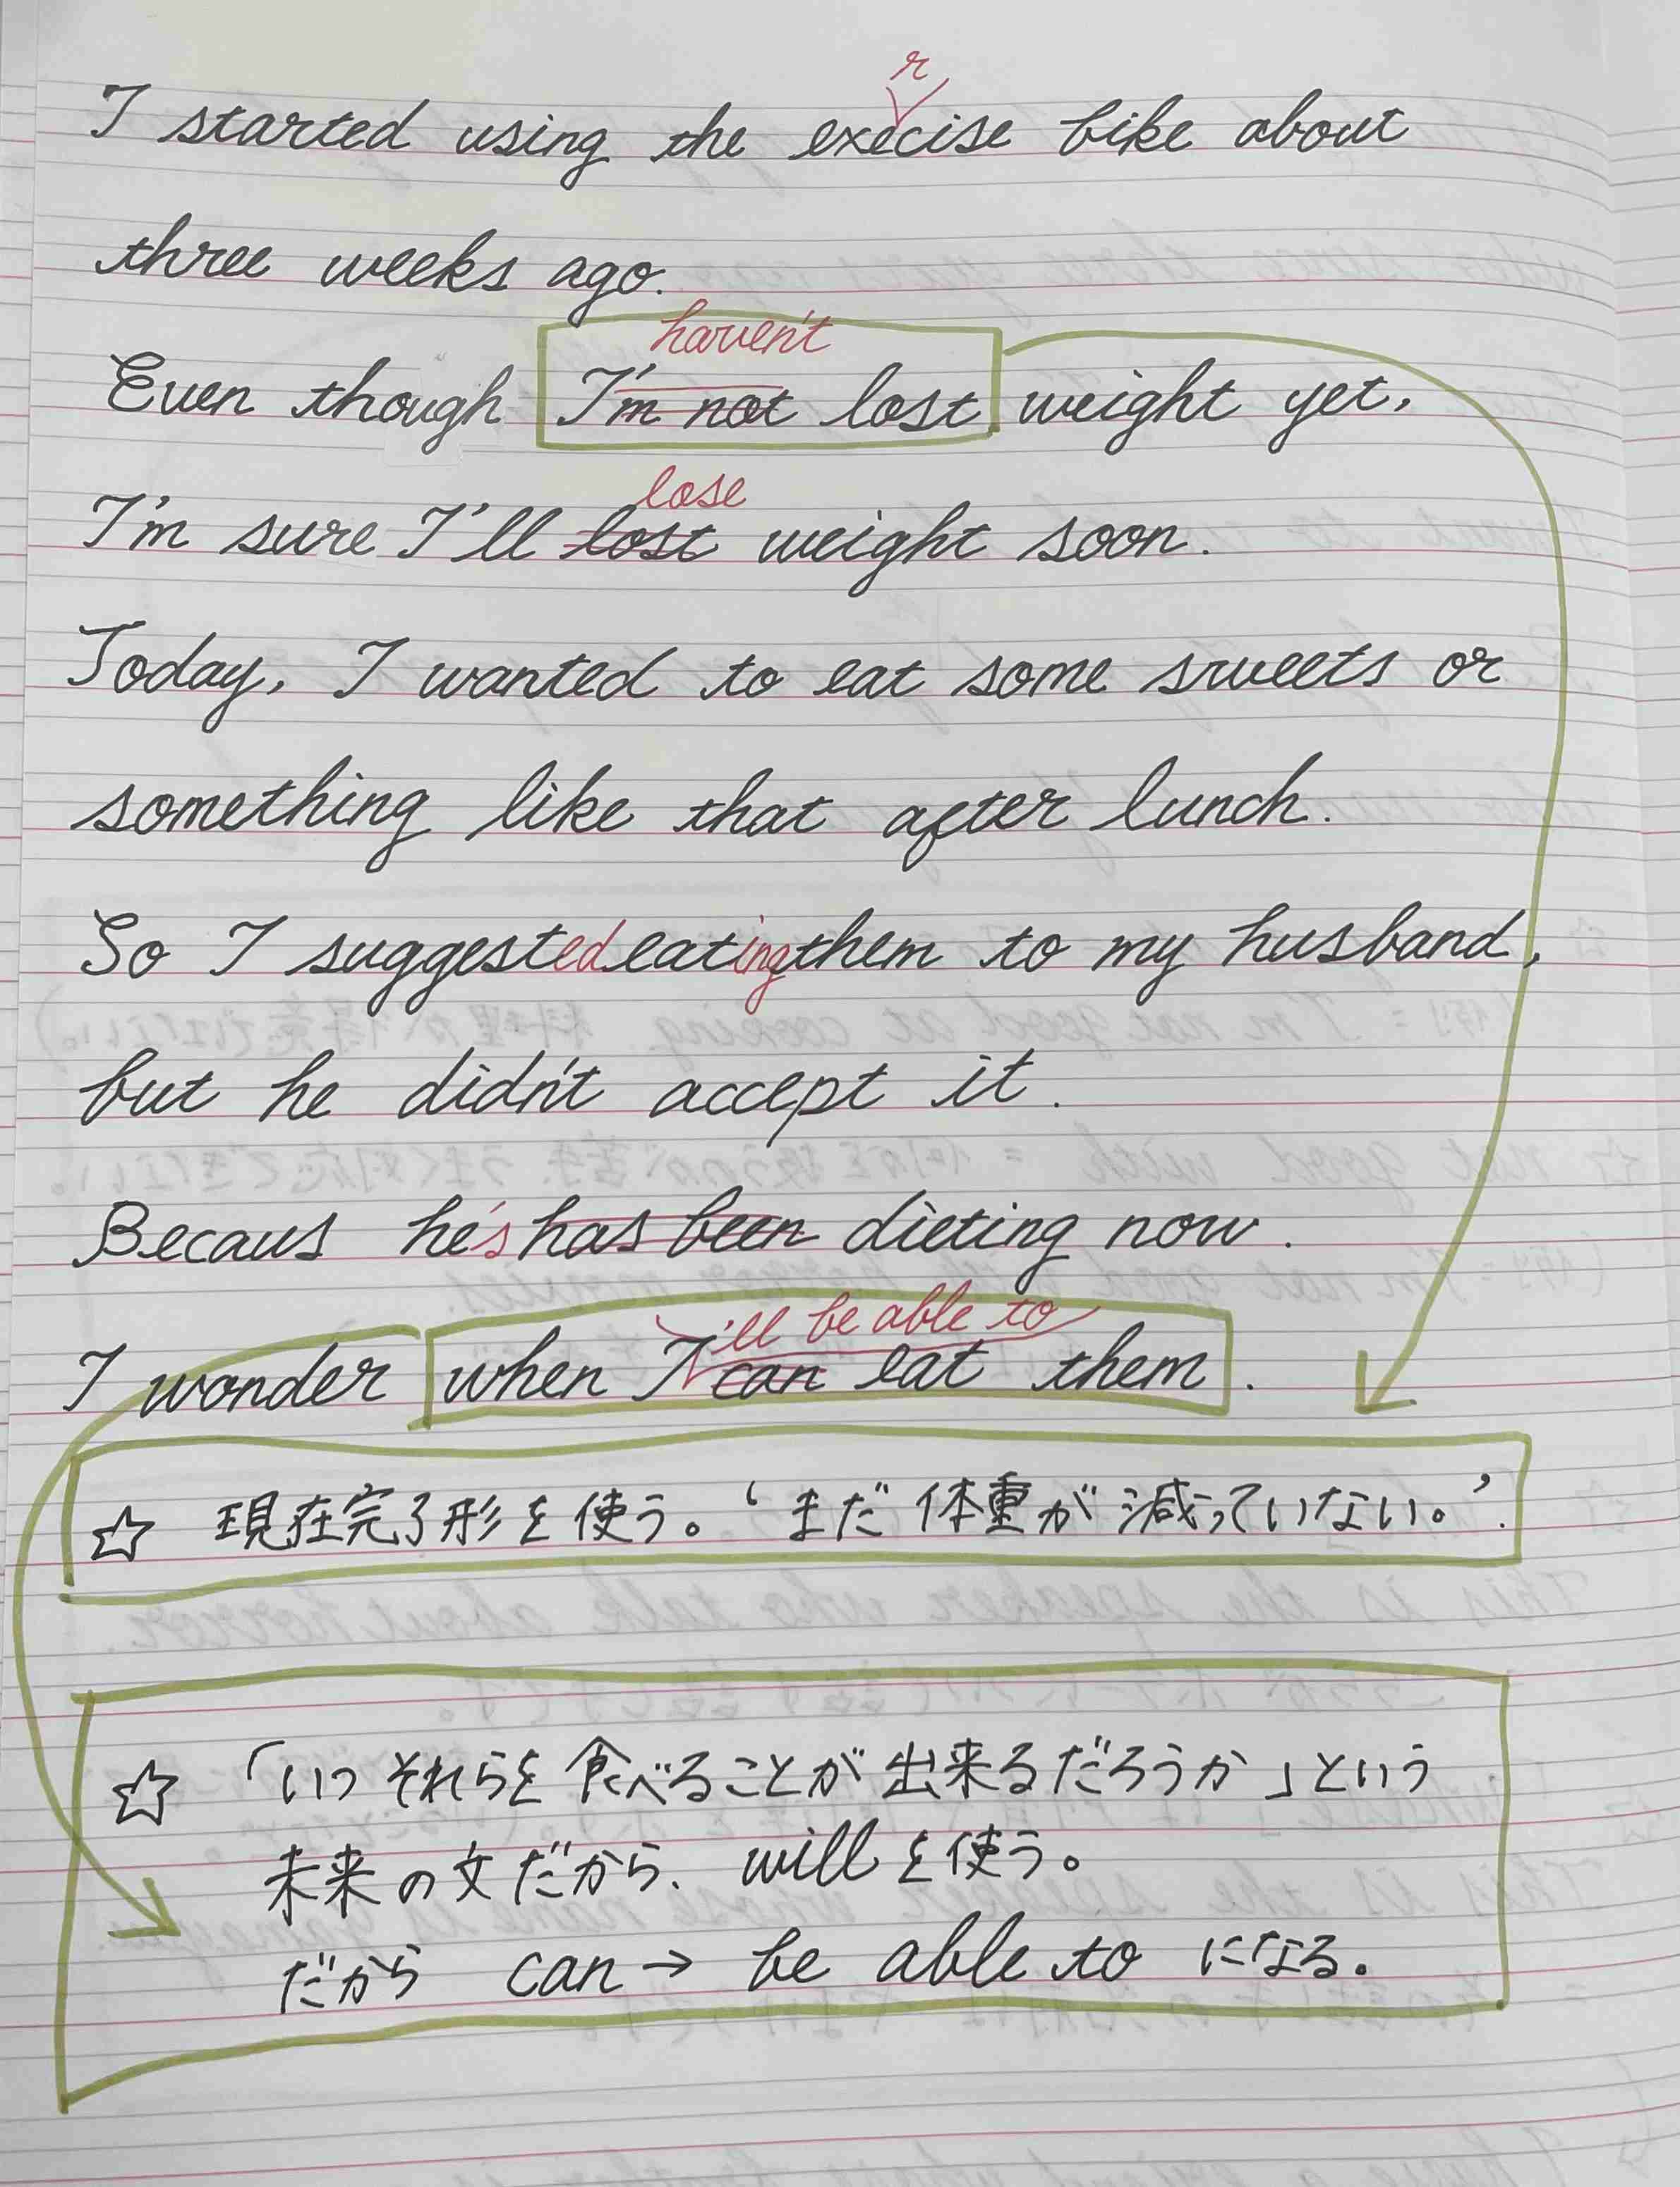 r
I started using the execise bike about
three weeks ago.
haven't
Even though I'm not lost weight yet,
lose
I'm sure I'll lost weight soon.
Today, I wanted to eat some sweets or
something like that after lunch.
So I suggested eating them to my husband,
but he didn't accept it.
Becaus he's has been dieting now.
'll be able to
I wonder when I can eat them.
☆ 現在完了形を使う。‘まだ体重が減っていない。’.
☆ 「いつそれらを食べることが出来るだろうか」という
未来の文だから、willを使う。
だから can → be able to になる。